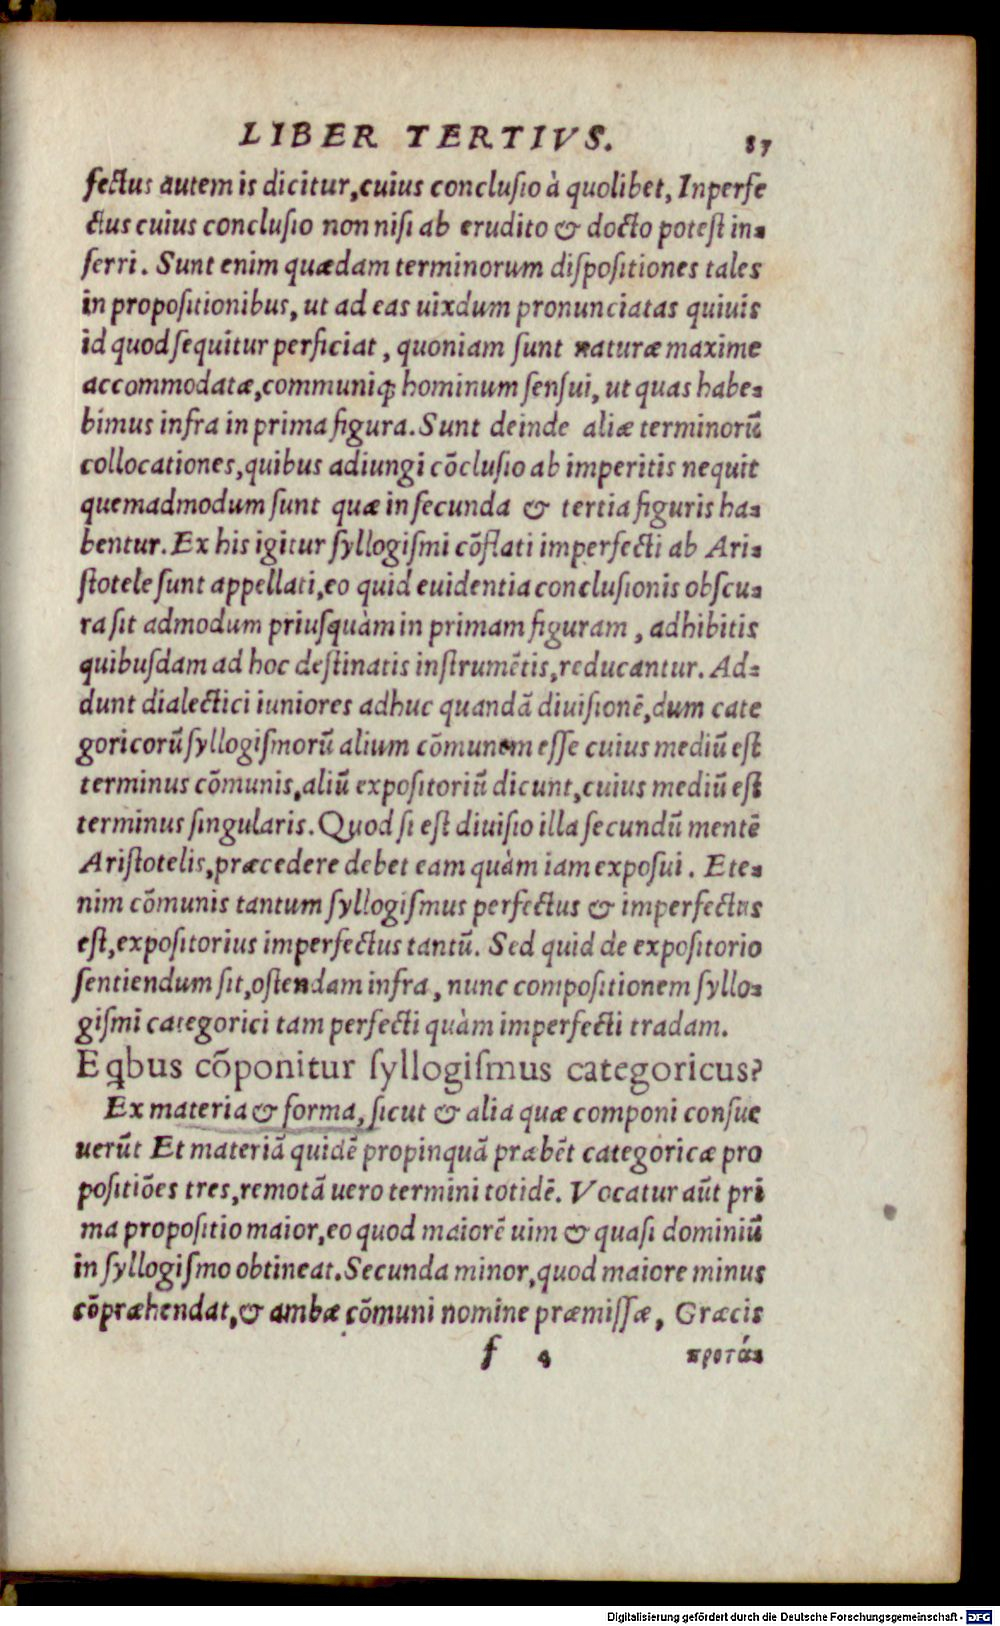 LIBER TERTIVS. 87
fectus autem is dicitur, cuius conclusio à quolibet, Inperfe
ctus cuius conclusio non nisi ab erudito & docto potest in-
ferri. Sunt enim quædam terminorum dispositiones tales
in propositionibus, ut ad eas uixdum pronunciatas quiuis
id quod sequitur perficiat, quoniam sunt naturæ maxime
accommodatæ, communiq; hominum sensui, ut quas habe-
bimus infra in prima figura. Sunt deinde aliæ terminorũ
collocationes, quibus adiungi cõclusio ab imperitis nequit
quemadmodum sunt quæ in secunda & tertia figuris ha-
bentur. Ex his igitur syllogismi cõflati imperfecti ab Ari-
stotele sunt appellati, eo quid euidentia conclusionis obscu-
ra sit admodum priusquàm in primam figuram, adhibitis
quibusdam ad hoc destinatis instrumẽtis, reducantur. Ad-
dunt dialectici iuniores adhuc quandã diuisionẽ, dum cate
goricorũ syllogismorũ alium cõmunem esse cuius mediũ est
terminus cõmunis, aliũ expositoriũ dicunt, cuius mediũ est
terminus singularis. Quod si est diuisio illa secundũ mentẽ
Aristotelis, præcedere debet eam quàm iam exposui. Ete-
nim cõmunis tantum syllogismus perfectus & imperfectus
est, expositorius imperfectus tantũ. Sed quid de expositorio
sentiendum sit, ostendam infra, nunc compositionem syllo-
gismi categorici tam perfecti quàm imperfecti tradam.
E qbus cõponitur syllogismus categoricus?
Ex materia & forma, sicut & alia quæ componi consue
uerũt Et materiã quidẽ propinquã præbẽt categoricæ pro
positiões tres, remotã uero termini totidẽ. Vocatur aũt pri
ma propositio maior, eo quod maiorẽ uim & quasi dominiũ
in syllogismo obtineat. Secunda minor, quod maiore minus
cõpræhendat, & ambæ cõmuni nomine præmissæ, Græcis
f 4 προτά-
Digitalisierung gefördert durch die Deutsche Forschungsgemeinschaft - DFG